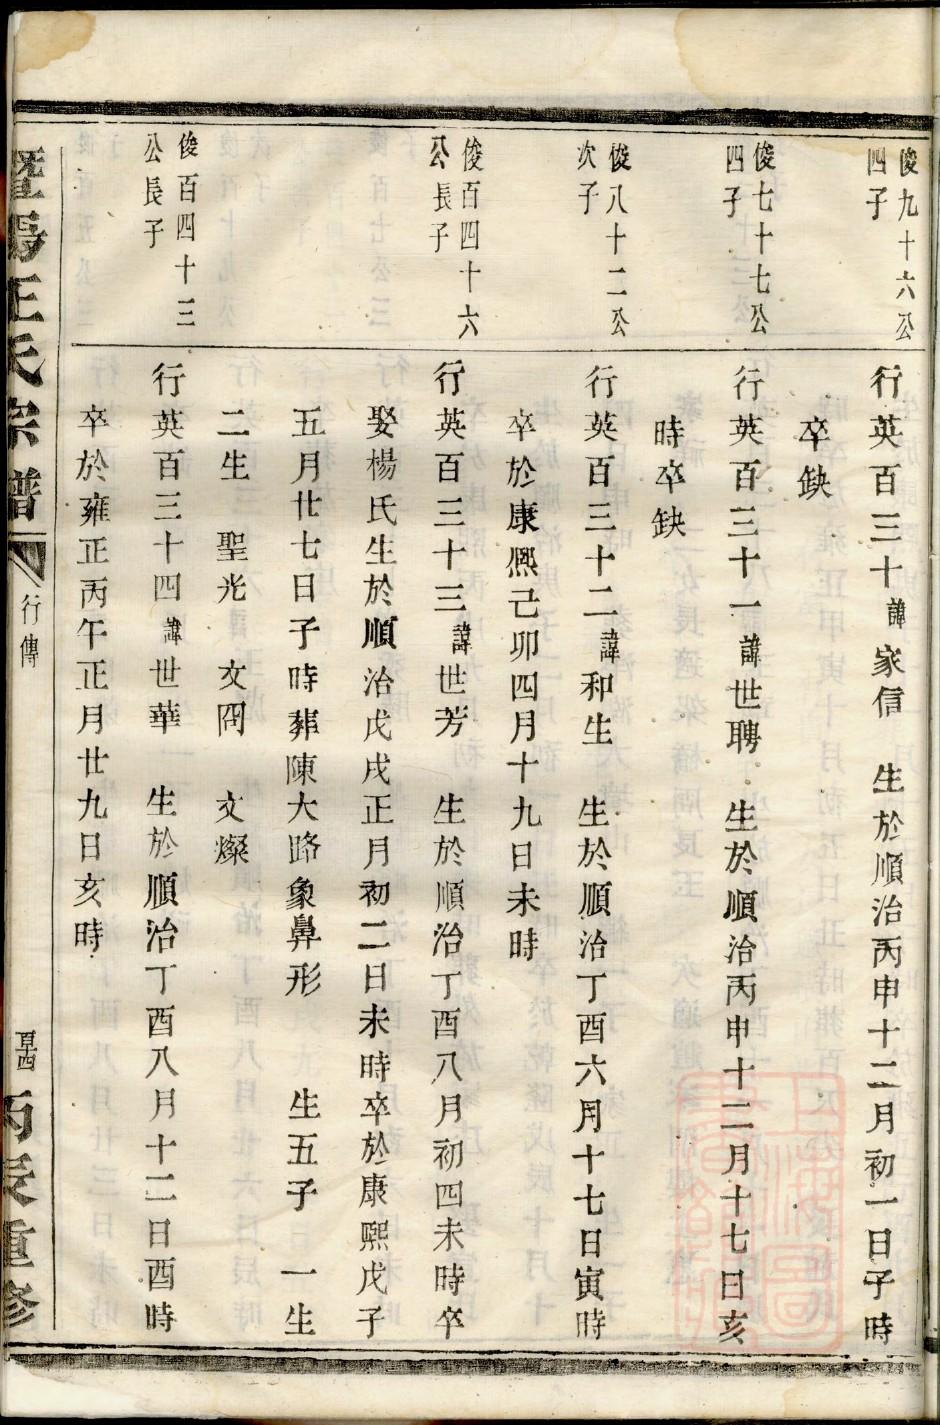 俊九十六公
四子
行英百三十諱家信　生於順治丙申十二月初一日子時
卒缺
俊七十七公
四子
行英百三十一諱世聘　生於順治丙申十二月十七日亥
時卒缺
俊八十二公
次子
行英百三十二諱和生　生於順治丁酉六月十七日寅時
卒於康熈己卯四月十九日未時
俊百四十六
公長子
行英百三十三諱世芳　生於順治丁酉八月初四未時卒
娶楊氏生於順治戊戌正月初二日未時卒於康熈戊子
五月廿七日子時葬陳大路象鼻形　生五子　一生
二生　聖光　文岡　文燦
俊百四十三
公長子
行英百三十四諱世華　生於順治丁酉八月十二日酉時
卒於雍正丙午正月廿九日亥時
暨陽王氏宗譜　行傳　丙辰重修